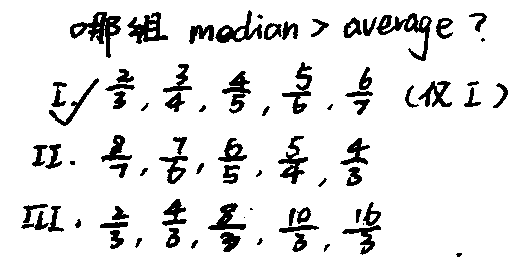 哪组 median > average ?
I.✓ 2/3, 3/4, 4/5, 5/6, 6/7 (仅 I)
II. 8/7, 7/6, 6/5, 5/4, 4/3
III. 2/3, 4/3, 8/3, 10/3, 16/3